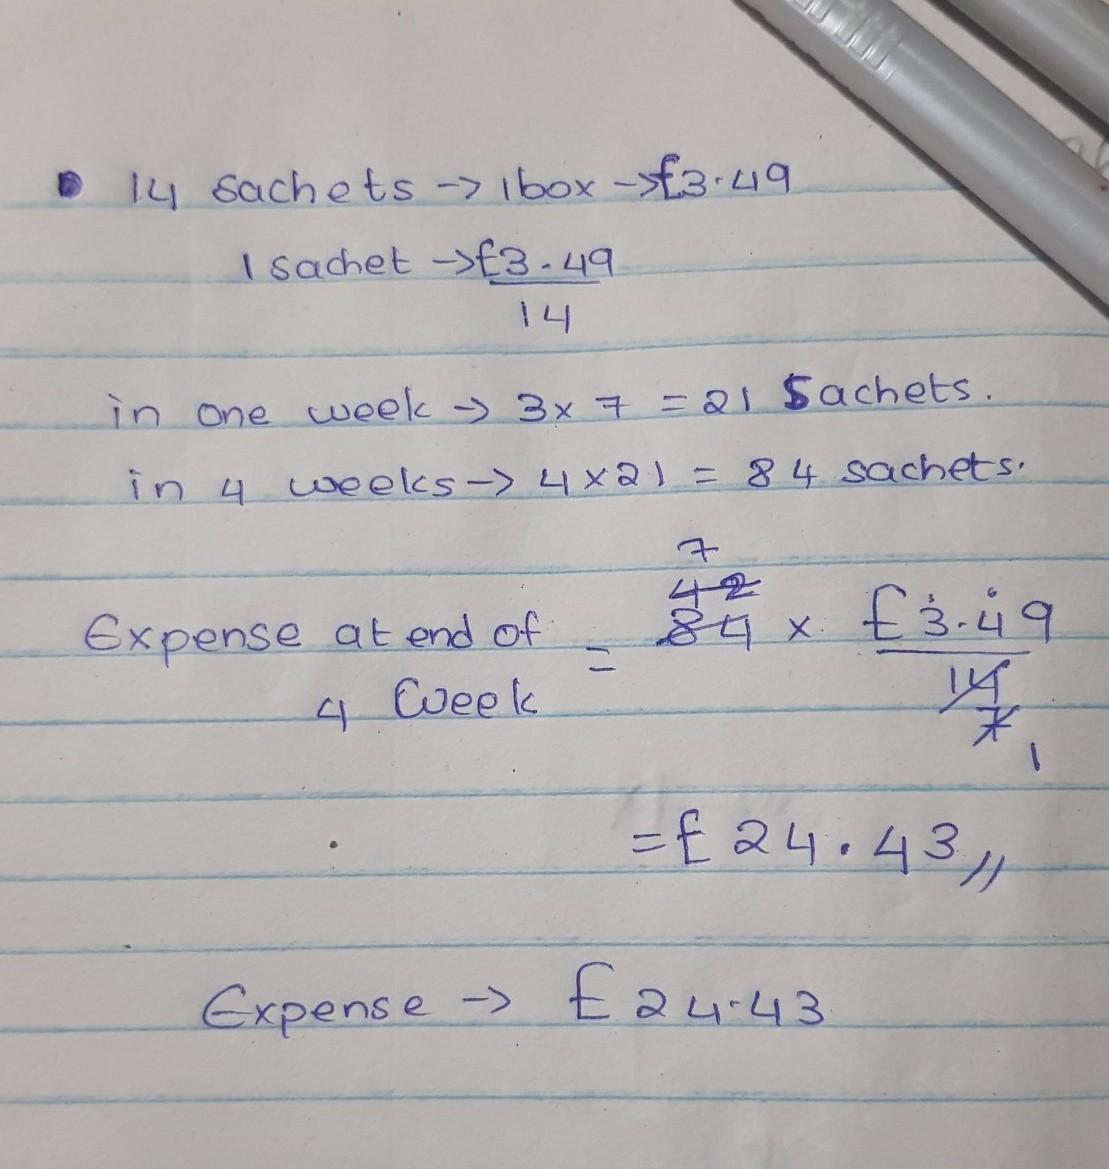 14 sachets -> 1 box -> £3.49
1 sachet -> £3.49
14
in one week -> 3 x 7 = 21 Sachets.
in 4 weeks -> 4 x 21 = 84 sachets.
7
42
Expense at end of = 84 x £3.49
4 week 14
7 1
= £ 24.43 //
Expense -> £ 24.43